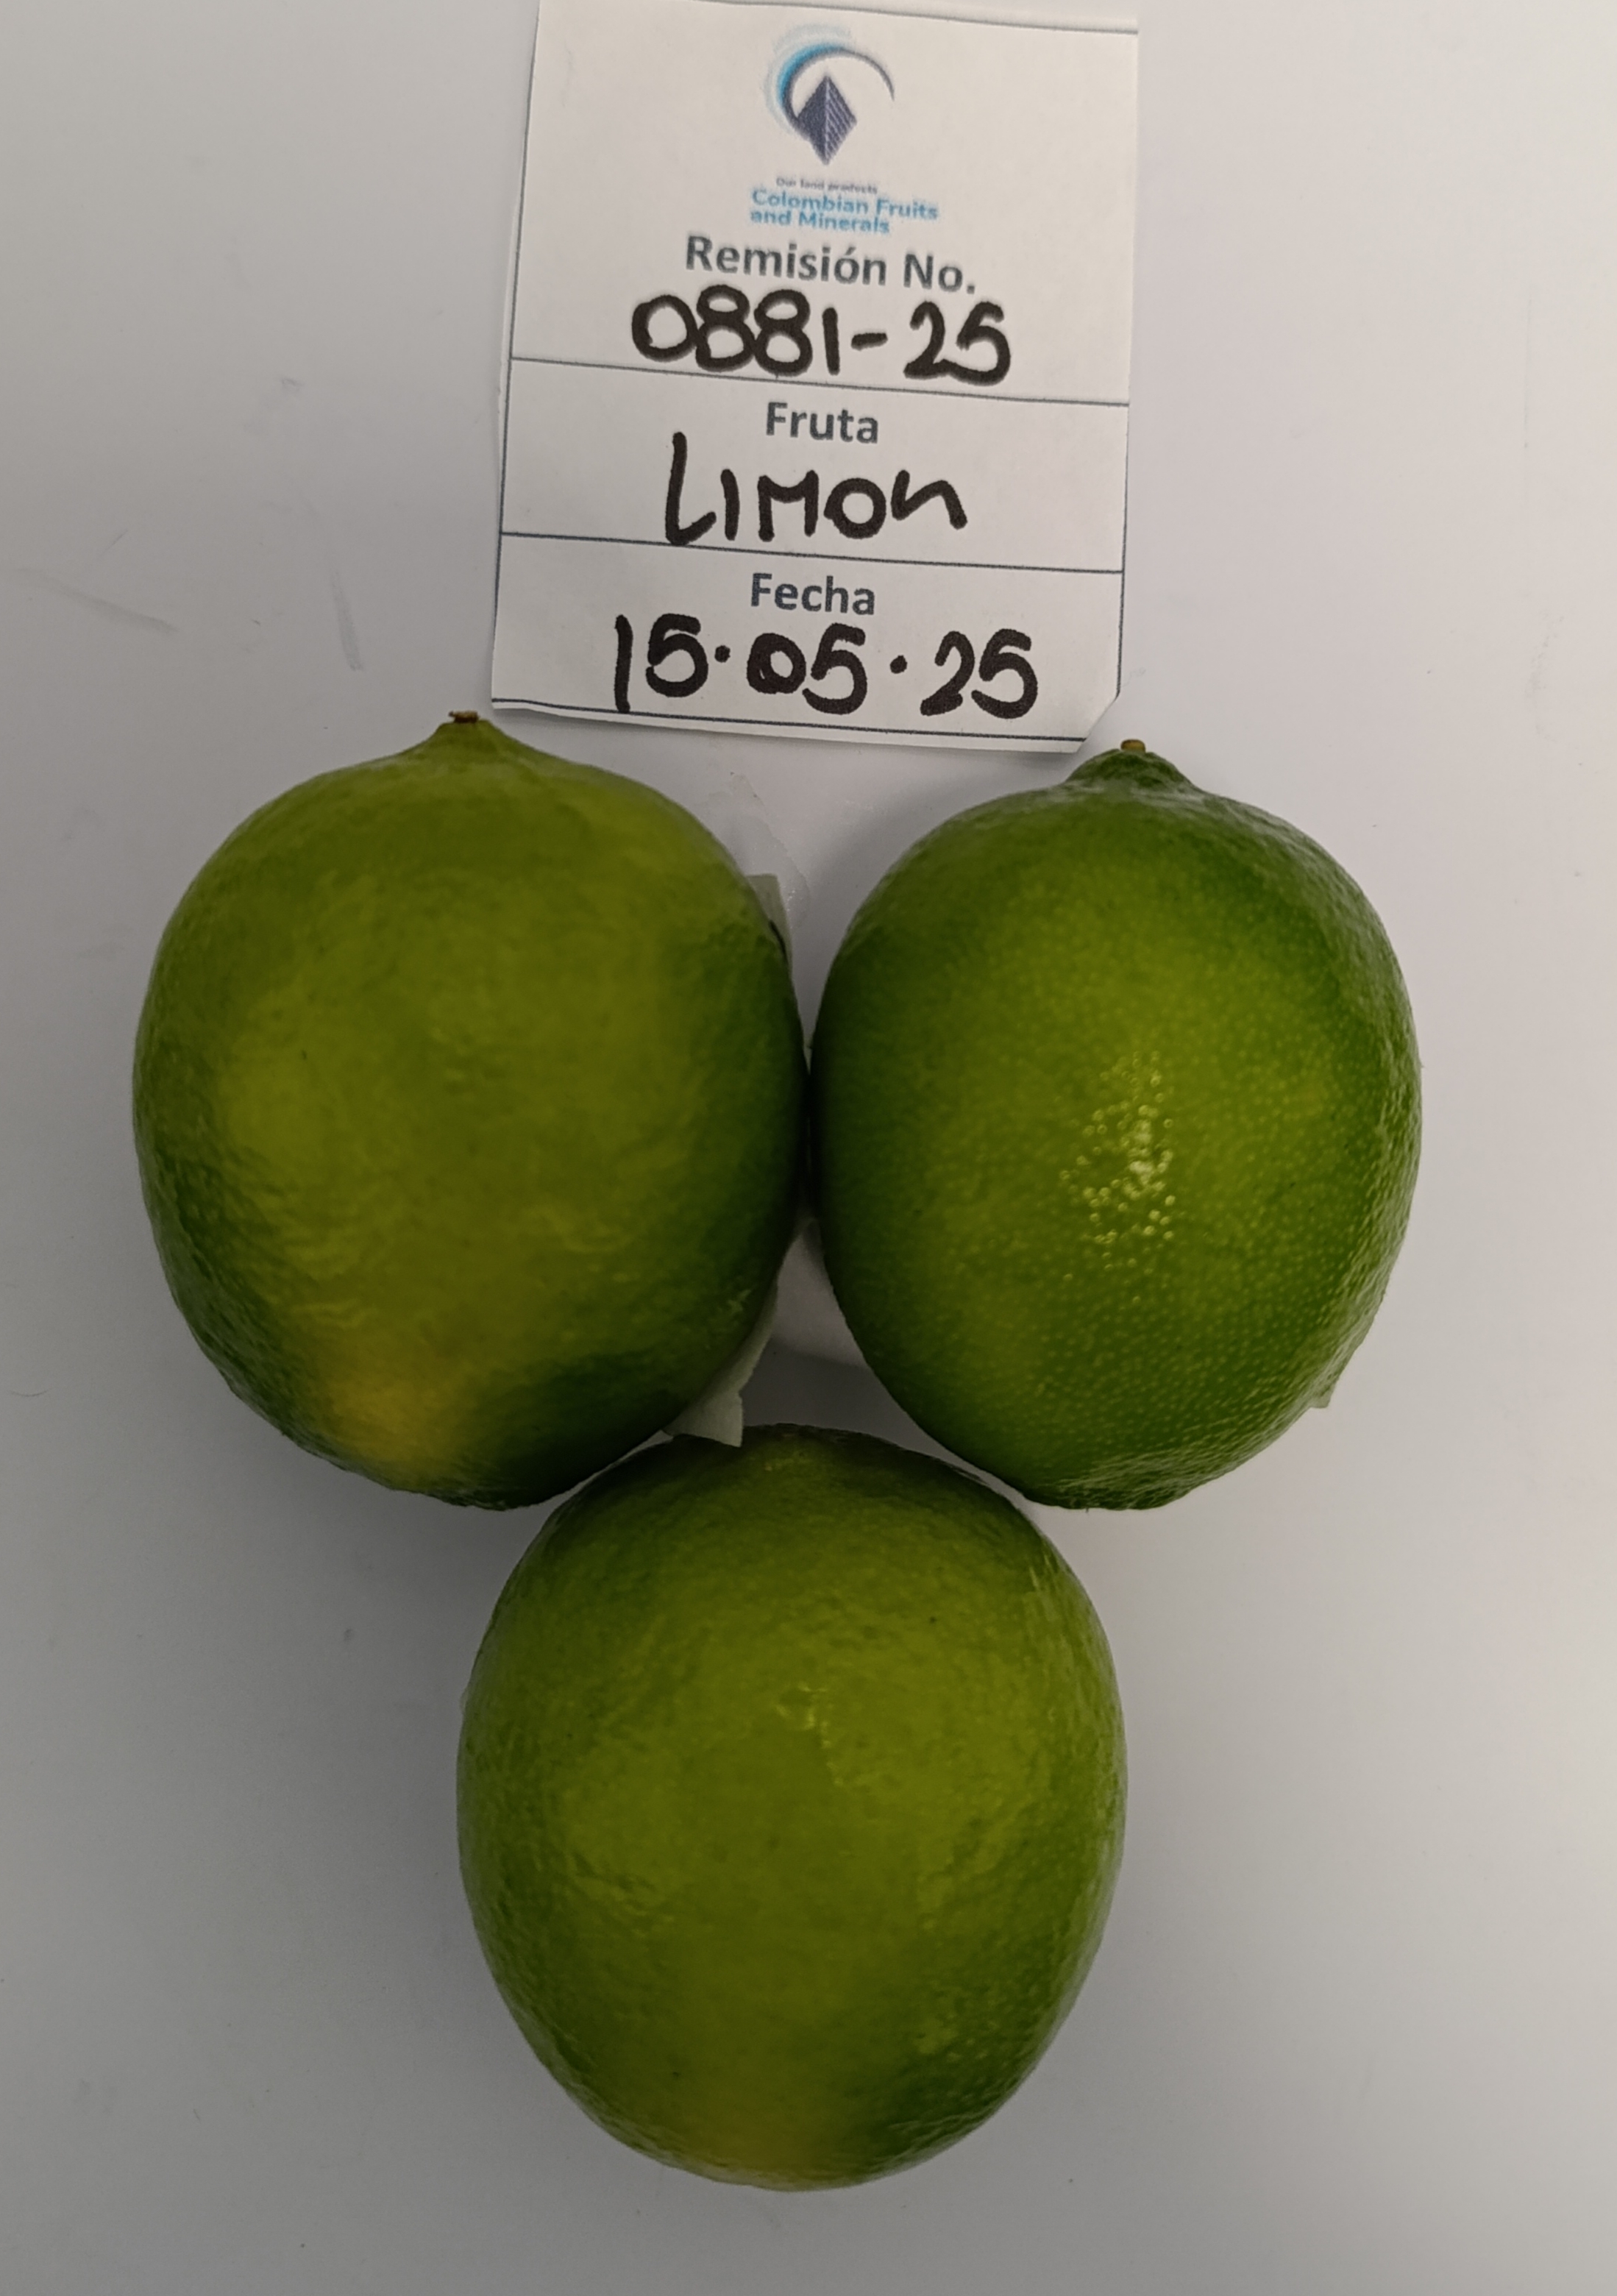 Our land products
Colombian Fruits
and Minerals
Remisión No.
0881-25
Fruta
LIMON
Fecha
15.05.25